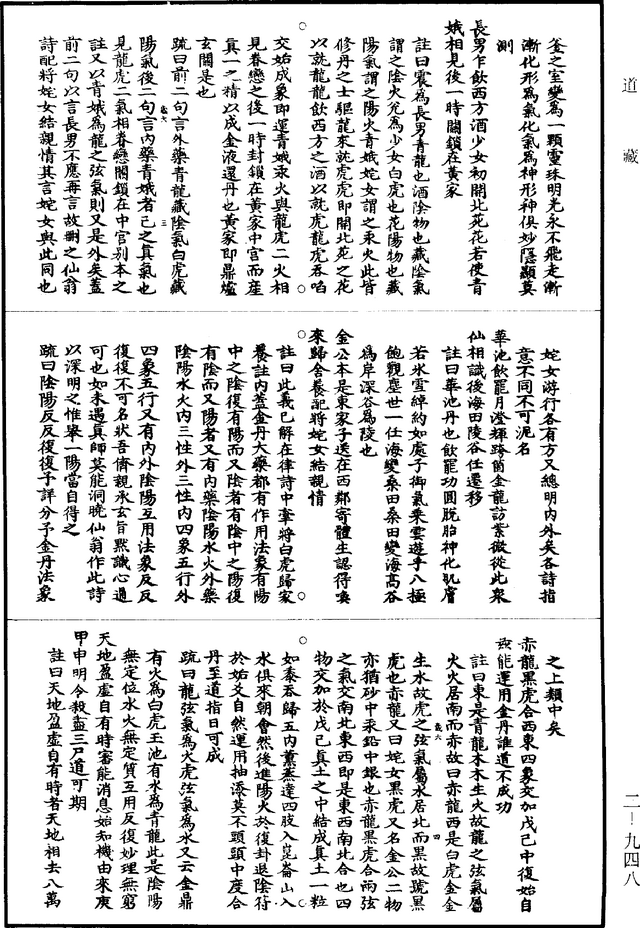 道藏
釜之室變為一顆靈珠明光永不飛走漸
漸化形為氣化氣為神形神俱妙隱顯莫
測
長男乍飲西方酒少女初開北苑花若使青
娥相見後一時關鎖在黃家
註曰震為長男青龍也酒陰物也藏陰氣
謂之陰火兌為少女白虎也花陽物也藏
陽氣謂之陽火青娥姹女謂之汞火此皆
修丹之士驅龍來就虎虎即開北苑之花
以就龍龍飲西方之酒以就虎龍虎吞啗
交姤成象即運青娥汞火與龍虎二火相
見眷戀之後一時封鎖在黃家中宮而産
真一之精以成金液還丹也黃家即鼎爐
玄關是也
疏曰前二句言外藥青龍藏陰氣白虎藏
陽氣後二句言內藥青娥者己之真氣也
見龍虎二氣相眷戀關鎖在中宮别本之
註又以青娥為龍之弦氣則又是外矣蓋
前二句以言長男不應再言故刪之仙翁
詩配將姹女結親情其言姹女與此同也
姹女游行各有方又總明內外矣各詩指
意不同不可泥名
華池飲罷月澄輝跨箇金龍訪紫微從此衆
仙相識後海田陵谷任遷移
註曰華池丹也飲罷功圓脫胎神化肌膚
若氷雪綽約如處子御氣乘雲遊乎八極
飽觀塵世一任海變桑田桑田變海高谷
為岸深谷為陵也
金公本是東家子送在西鄰寄體生認得喚
來歸舍養配將姹女結親情
註曰此義已解在律詩中牽將白虎歸家
養註內蓋金丹大藥都有作用法象有陽
中之陰復有陽而又陰者有陰中之陽復
有陰而又陽者又有內藥陰陽水火外藥
陰陽水火內三性外三性內四象五行外
四象五行又有內外陰陽互用法象反反
復復不可名狀吾儕親承玄旨默識心通
可也如未遇真師莫能洞曉仙翁作此詩
以深明之惟舉一陽當自得之
疏曰陰陽反反復復子詳分予金丹法象
之上類中矣
赤龍黑虎合西東四象交加戊己中復姤自
茲能運用金丹誰道不成功
註曰東是青龍本木生火故龍之弦氣屬
火火居南而赤故曰赤龍西是白虎金金
生水故虎之弦氣屬水居北而黑故號黑
虎也赤龍又曰姹女黑虎又名金公二物
亦猶砂中汞鉛中銀也赤龍黑虎合兩弦
之氣交南北東西即是東西南北合也四
物交加於戊己真土之中結成真土一粒
如黍吞歸五內薰蒸達四肢入崑崙山入
水俱來朝會然後進陽火於復卦退陰符
於姤爻自然運用抽添莫不頭頭中度合
丹至道指日可成
疏曰龍弦氣為火虎弦氣為水又云金鼎
有火為白虎玉池有水為青龍此是陰陽
無定位水火無定質互用反復妙理無窮
天地盈虛自有時審能消息始知機由來庚
甲申明令殺盡三尸道可期
註曰天地盈虛自有時者天地相去八萬
歲六 三
歲六 四
二-九四八